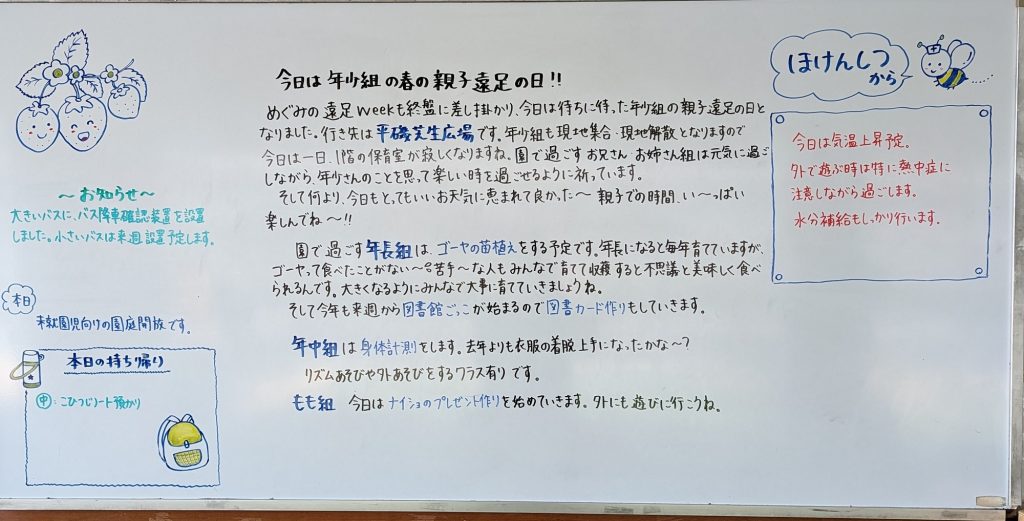 今日は年少組の春の親子遠足の日!!
めぐみの遠足weekも終盤に差し掛かり、今日は待ちに待った年少組の親子遠足の日と
なりました。行き先は平磯芝生広場です。年少組も現地集合・現地解散となりますので
今日は一日、1階の保育室が寂しくなりますね。園で過ごすお兄さんお姉さん組は元気に過ご
しながら、年少さんのことを思って楽しい時を過ごせるように祈っています。
そして何より、今日もとってもいいお天気に恵まれて良かった〜親子での時間、い〜っぱい
楽しんでね〜!!
園で過ごす年長組は、ゴーヤの苗植えをする予定です。年長になると毎年育てていますが、
ゴーヤって食べたことがない〜苦手〜な人もみんなで育てて収穫すると不思議と美味しく食べ
られるんです。大きくなるようにみんなで大事に育てていきましょうね。
そして今年も来週から図書館ごっこが始まるので図書カード作りもしていきます。
年中組は身体計測をします。去年よりも衣服の着脱上手になったかな〜?
リズムあそびや外あそびをするクラス有りです。
もも組 今日はナイショのプレゼント作りを始めていきます。外にも遊びに行こうね。
〜お知らせ〜
大きいバスに、バス降車確認装置を設置
しました。小さいバスは来週設置予定します。
本日
未就園児向けの園庭開放です。
本日の持ち帰り
㊥:こひつじノート預かり
ほけんしつ
から
今日は気温上昇予定。
外で遊ぶ時は特に熱中症に
注意しながら過ごします。
水分補給もしっかり行います。